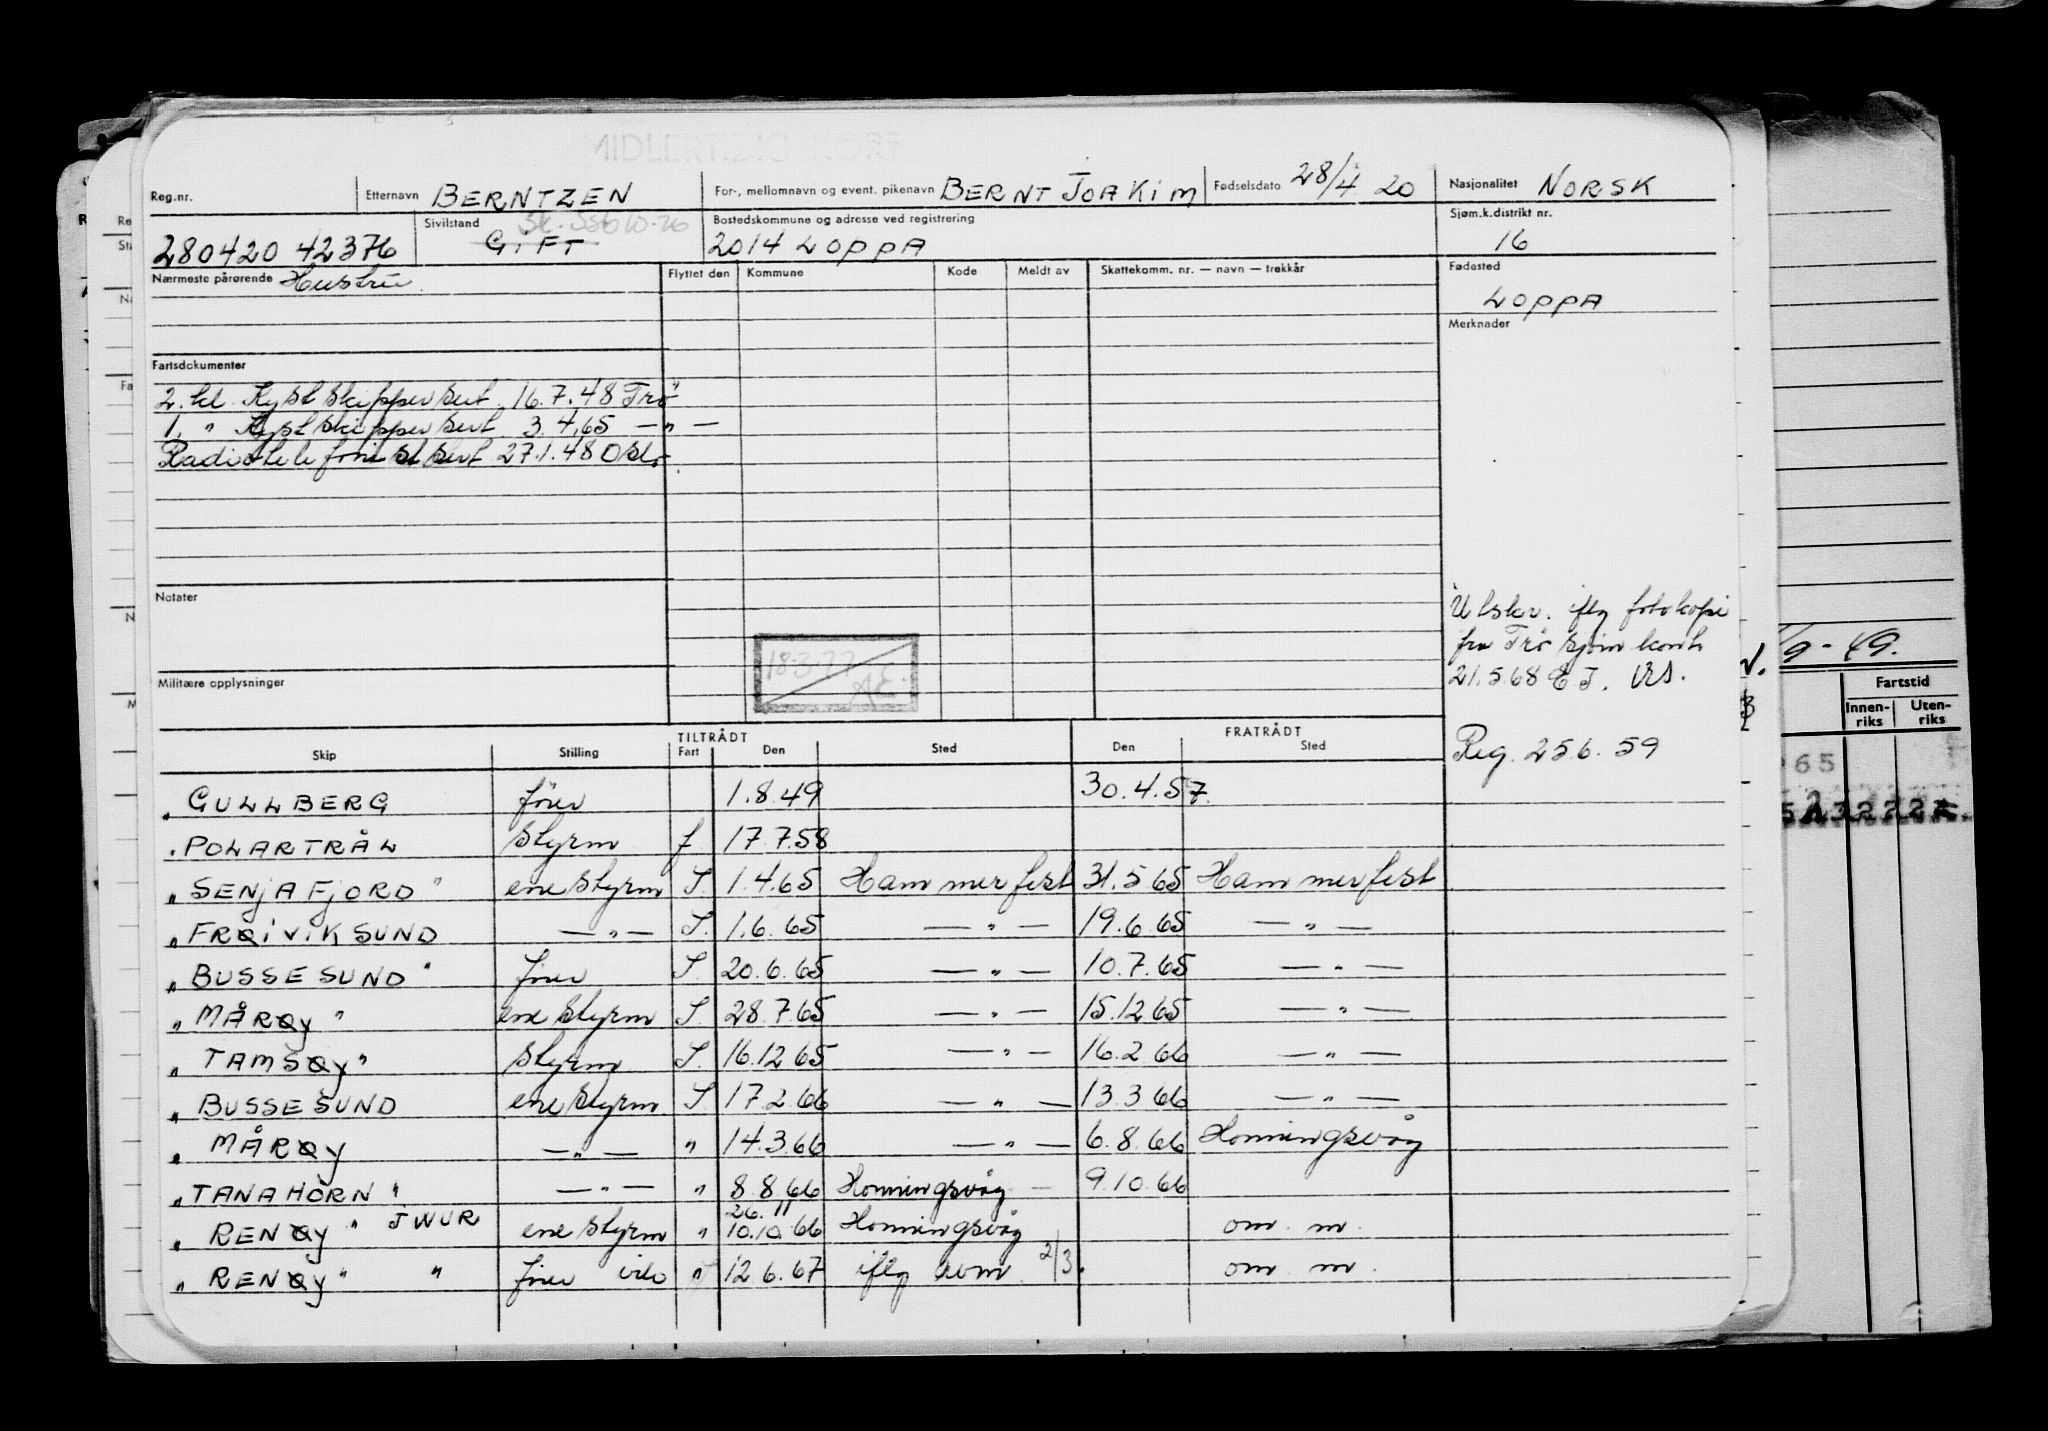 MIDLERTIDIG KORT
Reg.nr. Etternavn BERNTZEN For-, mellomnavn og event. pikenavn BERNT JOAKIM Fødselsdato 28/4 20 Nasjonalitet NORSK
280420 42376 Sivilstand GIFT Bostedskommune og adresse ved registrering 2014 LOPPA Sjøm.k.distrikt nr. 16
Nærmeste pårørende Hustru Flyttet den Kommune Kode Meldt av Skattekomm. nr. — navn — trekkår Fødested
LOPPA
Merknader
Fartsdokumenter
2. kl Kystskippersert. 16.7.48 Trø
1. " Kystskippersert 3.4.65 — " —
Radiotelefonistsert 27.1.48 Oslo
Notater
Utskr. iflg fotokopi
fra Trø sjøm kont
21.5.68 E J.
18.3.77
Militære opplysninger
Reg. 256.59
TILTRÅDT FRATRÅDT
Skip Stilling Fart Den Sted Den Sted
" GULLBERG fører 1.8.49 30.4.57
" POLARTRÅL styrm f 17.7.58
" SENJAFJORD " ene styrm S. 1.4.65 Hammerfest 31.5.65 Hammerfest
" FRØIVIKSUND — " — S. 1.6.65 — " — 19.6.65 — " —
" BUSSESUND " fører S. 20.6.65 — " — 10.7.65 — " —
" MÅRØY " ene styrm S. 28.7.65 — " — 15.12.65 — " —
" TAMSØY " styrm S. 16.12.65 — " — 16.2.66 — " —
" BUSSESUND ene styrm S. 17.2.66 — " — 13.3.66 — " —
" MÅRØY — " — " 14.3.66 — " — 6.8.66 Honningsvåg
" TANAHORN " — " — " 8.8.66 Honningsvåg — 9.10.66
26.11
" RENØY " JWUR ene styrm " 10.10.66 Honningsvåg om. m.
" RENØY " " fører " 12.6.67 iflg 2/3. om m.
/9-49.
Fartstid
Innen-
riks
Uten-
riks
65